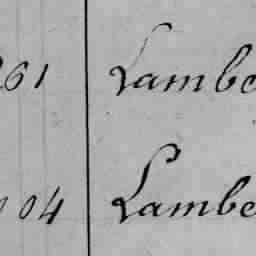 261 Lambe
04 Lambe